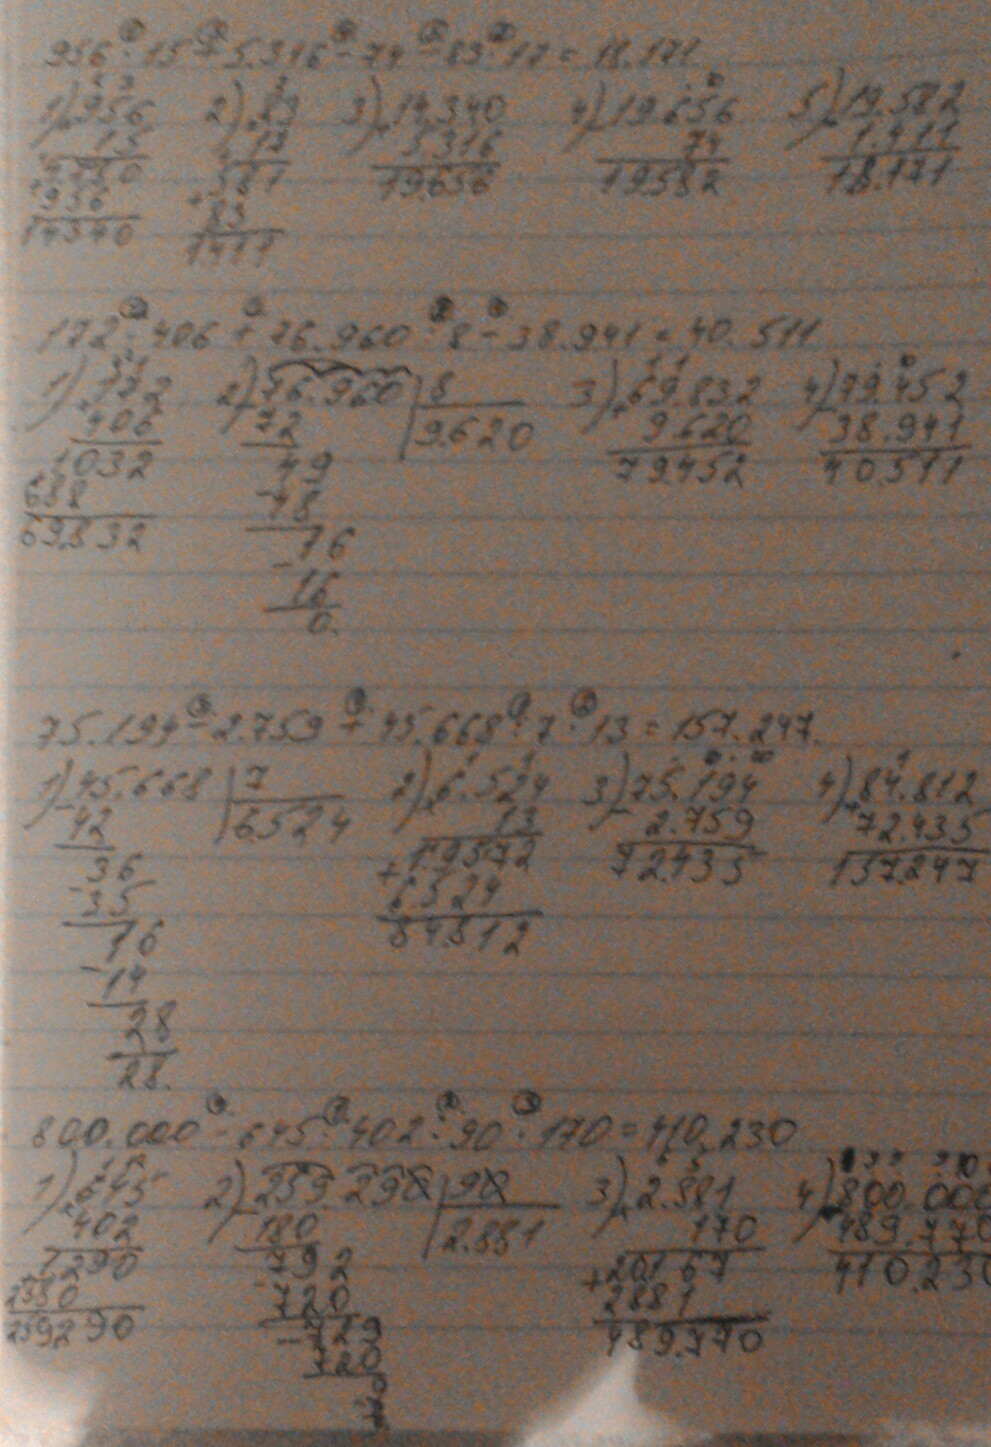 956 · 15 + 5.316 - 74 - 83 · 17 = 18.171
1) 956 2) 83 3) 14.340 4) 19.656 5) 19.582
15 17 5316 74 1.411
4780 581 19.656 19582 18.171
956 83
14340 1411
172 · 406 + 76.960 : 8 - 38.941 = 40.511
1) 172 2) 76.960 8 3) 69.832 4) 79.452
406 72 9.620 9.620 38.941
1032 49 79452 40.511
688 48
69.832 16
16
0.
75.194 - 2.759 + 45.668 : 7 · 13 = 157.247
1) 45.668 7 2) 6.524 3) 75.194 4) 84.812
42 6524 13 2.759 72.435
36 19572 72.435 157.247
35 6524
16 84812
14
28
28.
800.000 - 645 · 402 : 90 · 170 = 410.230
1) 645 2) 259.290 90 3) 2.881 4) 800.000
402 180 2.881 170 489.770
1290 792 20167 410.230
2580 720 2881
259290 729 489.770
720
9